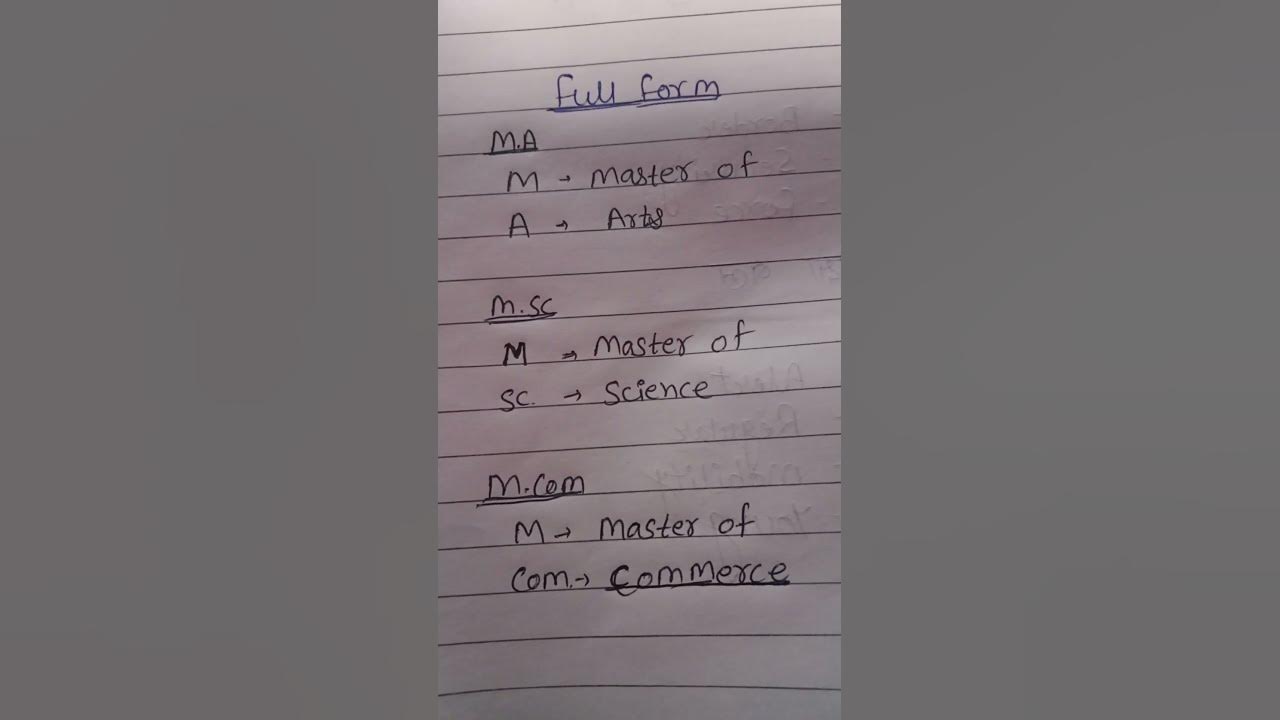 Full Form
M.A
M → Master of
A → Arts
M.SC
M → Master of
SC. → Science
M.Com
M → Master of
Com. → Commerce